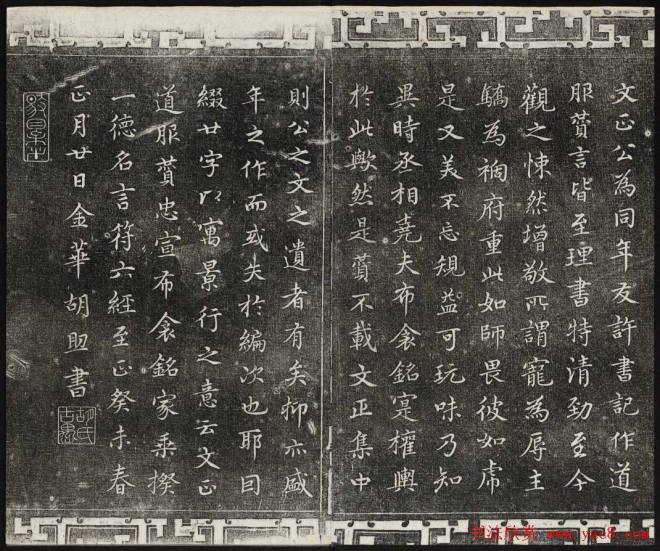 文正公為同年友許書記作道
服贊言皆至理書特清勁至今
觀之悚然增敬所謂寵為辱主
驕為禍府重此如師畏彼如虎
是又美不忘規益可玩味乃知
異時丞相堯夫布衾銘寔權輿
於此歟然是贊不載文正集中
則公之文之遺者有矣抑亦盛
年之作而或失於編次也耶因
綴廿字以寓景行之意云文正
道服贊忠宣布衾銘家乘揆
一德名言符六經至正癸未春
正月廿日金華胡助書
胡氏古愚
书法欣赏 www.yac8.com